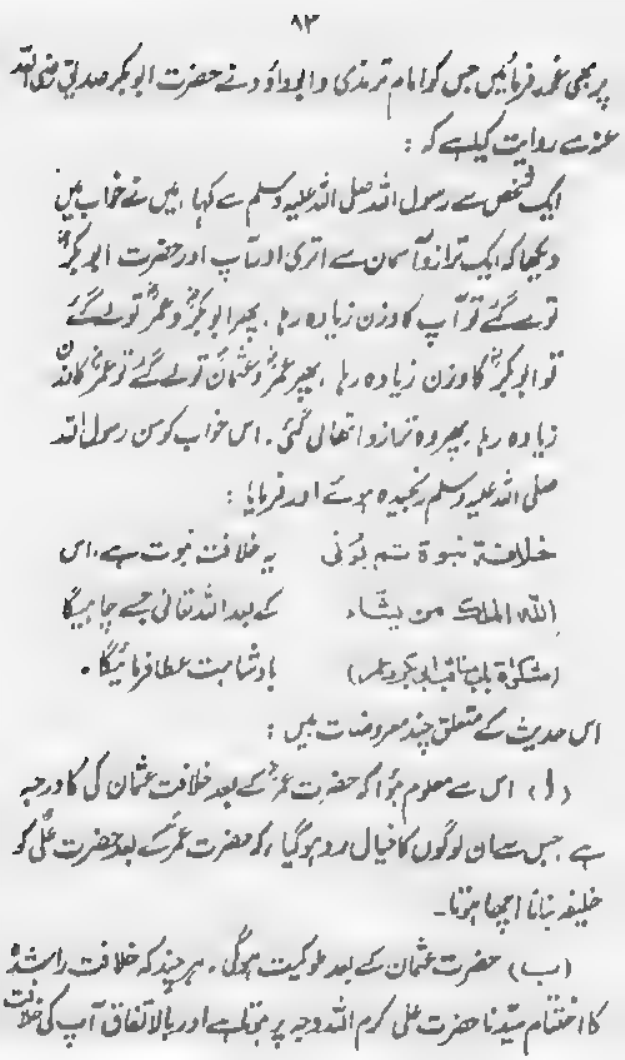 ۸۳
پر بھی غور فرمائیں جس کو امام ترمذی و ابوداؤد نے حضرت ابوبکر صدیق رضی اللہ
عنہ سے روایت کیا ہے کہ :
ایک شخص سے رسول اللہ صلی اللہ علیہ وسلم سے کہا ، میں نے خواب میں
دیکھا کہ ایک ترازو آسمان سے اتری اور آپ اور حضرت ابوبکرؓ
تولے گئے تو آپ کا وزن زیادہ رہا . پھر ابوبکرؓ و عمرؓ تولے گئے
تو ابوبکرؓ کا وزن زیادہ رہا . پھر عمرؓ و عثمانؓ تولے گئے تو عمرؓ کا وزن
زیادہ رہا . پھر وہ ترازو اٹھالی گئی . اس خواب کو سن رسول اللہ
صلی اللہ علیہ وسلم رنجیدہ ہوئے اور فرمایا :
خلافة نبوة ثم يؤتى یہ خلافت نبوت ہے . اس
الله الملك من يشاء کے بعد اللہ تعالٰی جسے چاہیگا
(مشکوٰۃ باب مناقب ابوبکر و عمر) بادشاہت عطا فرمائیگا .
اس حدیث کے متعلق چند معروضات ہیں :
(ا) اس سے معلوم ہوا کہ حضرت عمرؓ کے بعد خلافت عثمان کی کا درجہ
ہے جس سے ان لوگوں کا خیال رد ہوگیا ، کہ حضرت عمرؓ کے بعد حضرت علیؓ کو
خلیفہ بنانا اچھا ہوتا ۔
(ب) حضرت عثمان کے بعد ملوکیت ہوگی . ہر چند کہ خلافت راشدہ
کا اختتام سیدنا حضرت علی کرم اللہ وجہہ پر ہوتا ہے اور بالاتفاق آپ کی خلافت